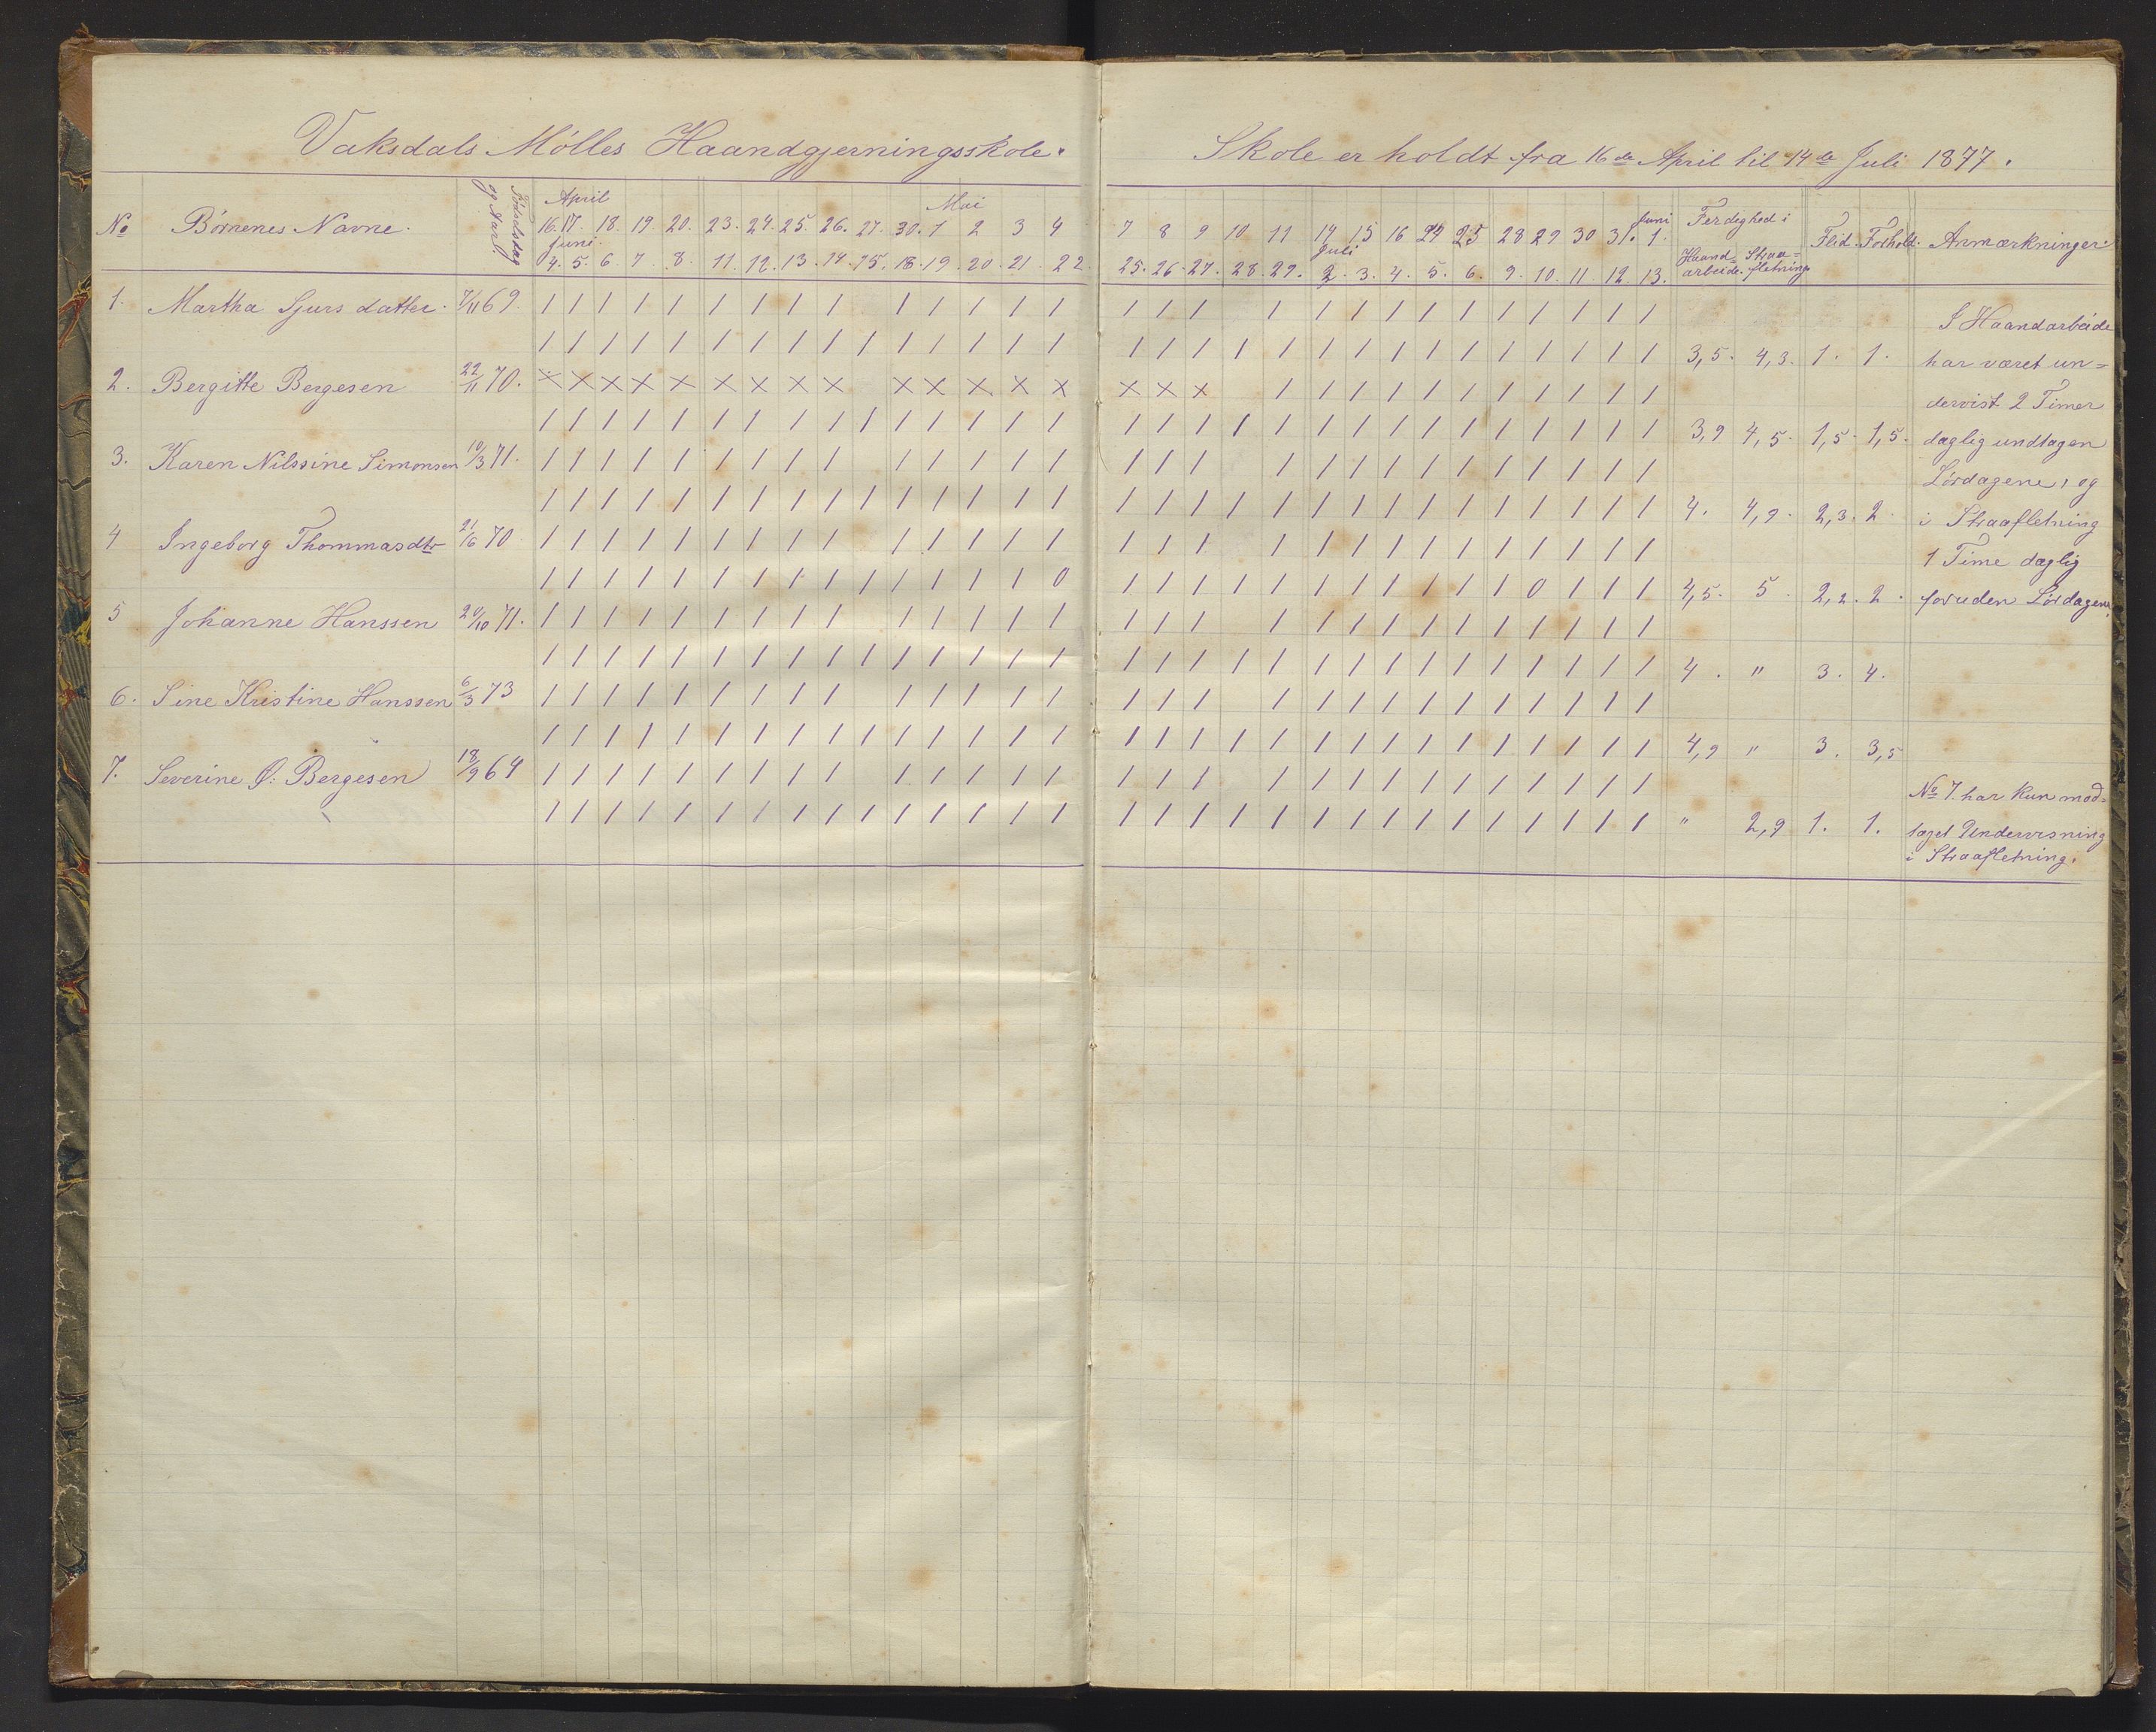 Vaksdals Mølles Haandgjerningsskole.
Skole er holdt fra 16de April til 14de Juli 1877.
No Børnenes Navne. Fødselsdag og Aar April Mai
16. 17. 18. 19. 20. 23. 24. 25. 26. 27. 30. 1 2 3 4
Juni.
4. 5. 6. 7. 8. 11. 12. 13. 14. 15. 18. 19. 20. 21. 22.
7 8 9 10 11 14 15 16 24 25 28 29 30 31. Juni 1.
Juli
25. 26. 27. 28. 29. 2. 3. 4. 5. 6. 9. 10. 11. 12. 13.
Ferdighed i
Haand=arbeide. Straa=fletning Flid. Forhold. Anmærkninger.
1. Martha Sjursdatter. 7/11 69. / / / / / / / / / / / / / / / / / / / / / / / / / / / /
/ / / / / / / / / / / / / / / / / / / / / / / / / / / / / / 3,5. 4,3. 1. 1.
2. Bergitte Bergesen 22/11 70. x x x x x x x x x x x x x x x x x / / / / / / / / / / /
/ / / / / / / / / / / / / / / / / / / / / / / / / / / / / / 3,9 4,5. 1,5. 1,5.
3. Karen Nilssine Simonsen 10/3 71. / / / / / / / / / / / / / / / / / / / / / / / / / / / /
/ / / / / / / / / / / / / / / / / / / / / / / / / / / / / / 4. 4,9. 2,3. 2.
4 Ingeborg Thommasdtr 21/6 70 / / / / / / / / / / / / / / / / / / / / / / / / / / / /
/ / / / / / / / / / / / / / 0 / / / / / / / / / / / 0 / / / 4,5. 5. 2,2. 2.
5 Johanne Hanssen 20/10 71. / / / / / / / / / / / / / / / / / / / / / / / / / / / /
/ / / / / / / / / / / / / / / / / / / / / / / / / / / / / / 4. " 3. 4.
6. Sine Kristine Hanssen 6/3 73 / / / / / / / / / / / / / / / / / / / / / / / / / / / /
/ / / / / / / / / / / / / / / / / / / / / / / / / / / / / / 4,9 " 3. 3,5
7. Severine Ø: Bergesen 18/9 64 / / / / / / / / / / / / / / / / / / / / / / / / / / / /
/ / / / / / / / / / / / / / / / / / / / / / / / / / / / / / " 2,9 1. 1.
I Haandarbeide
har været un=
dervist 2 Timer
daglig undtagen
Lørdagene, og
i Straafletning
1 Time daglig
foruden Lørdagene.
No 7. har kun mod=
taget Undervisning
i Straafletning.